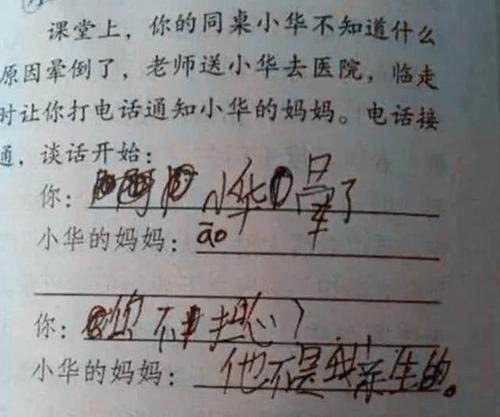 课堂上，你的同桌小华不知道什么
原因晕倒了，老师送小华去医院，临走
时让你打电话通知小华的妈妈。电话接
通，谈话开始：
你：小华晕了
小华的妈妈：āo
你：您不担心？
小华的妈妈：他不是我亲生的。